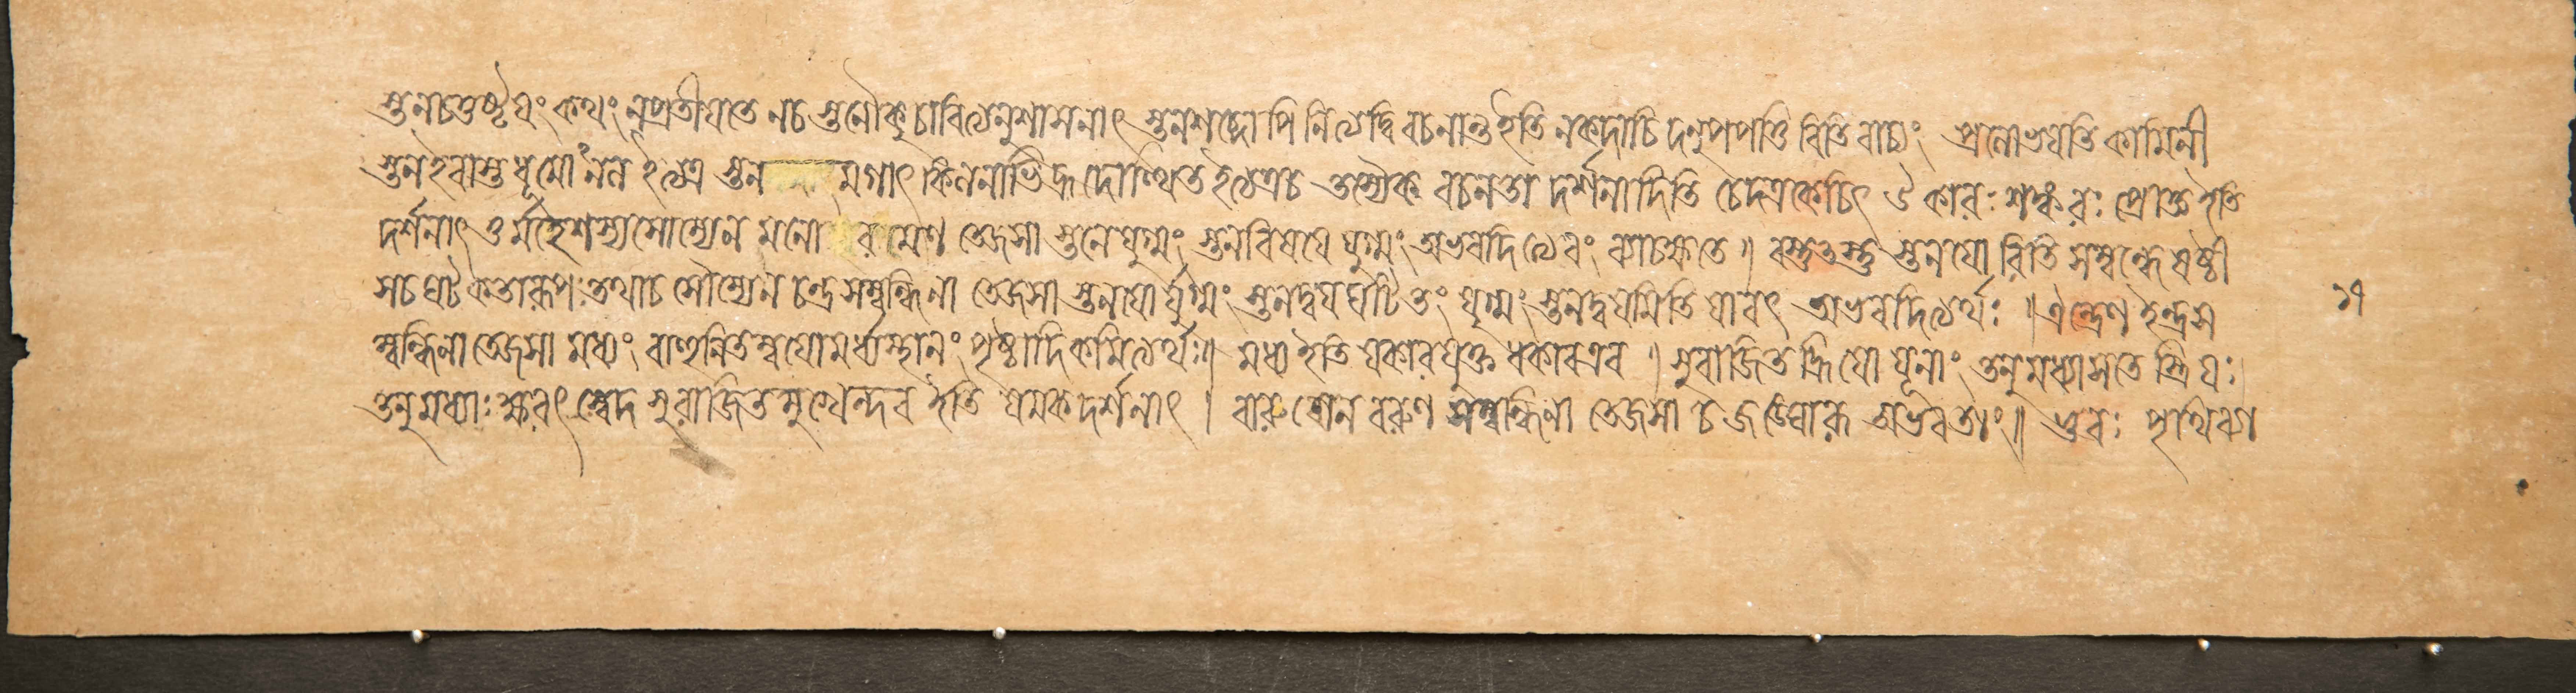 স্তনাচতুষ্টয়ং কথং নপ্রতীয়তে নচ স্তনৌকুচাবিত্যনুশাসনাৎ স্তনশব্দোপি নিত্যদ্বিবচনান্তইতি নকদাচিদনুপপত্তিরিতিবাচ্যং প্রণোভয়তি কামিনী
স্তন ইবাস্তধূমো ইত্যত্র স্তন মগাৎ ইত্যত্রচ তস্যৈক বচনতা দর্শনাদিতি চেদত্রকেচিৎ উকারঃ শঙ্করঃ প্রোক্তইতি
দর্শনাৎ উর্মহেশস্যসৌম্যেন মনো তেজসা স্তনেযুগ্মং স্তনবিষয়ে যুগ্মং অভবদিত্যেবং ব্যাচক্ষতে॥ বস্তুতস্তু স্তনযোরিতি সম্বন্ধেষষ্ঠী
সচ ঘটকতারূপঃ তথাচ সৌম্যেন চন্দ্রসম্বন্ধিনা তেজসা স্তনযোর্যুগ্মং স্তনদ্বয়ঘটিতং যুগ্মং স্তনদ্বয়মিতি যাবৎ অভবদিত্যর্থঃ॥ ঐন্দ্রেণ ইন্দ্রস
ম্বন্ধিনা তেজসা মধ্যং বাহুনিতম্বযোর্মধ্যস্থানং পৃষ্ঠাদিকমিত্যর্থঃ॥ মধ্য ইতি যকারযুক্ত ধকারএব॥ সুরাজিতহ্রিযো যূনাং তনুমধ্যাসতে স্ত্রিয়ঃ।
তনুমধ্যাঃ ক্ষরৎ স্বেদ সুরাজিতমুখেন্দব ইতি যমকদর্শনাৎ। বারুণেন বরুণ সম্বন্ধিনা তেজসা চ জঙ্ঘোরূ অভবতাং॥ ভুবঃ পৃথিব্যা
১৭